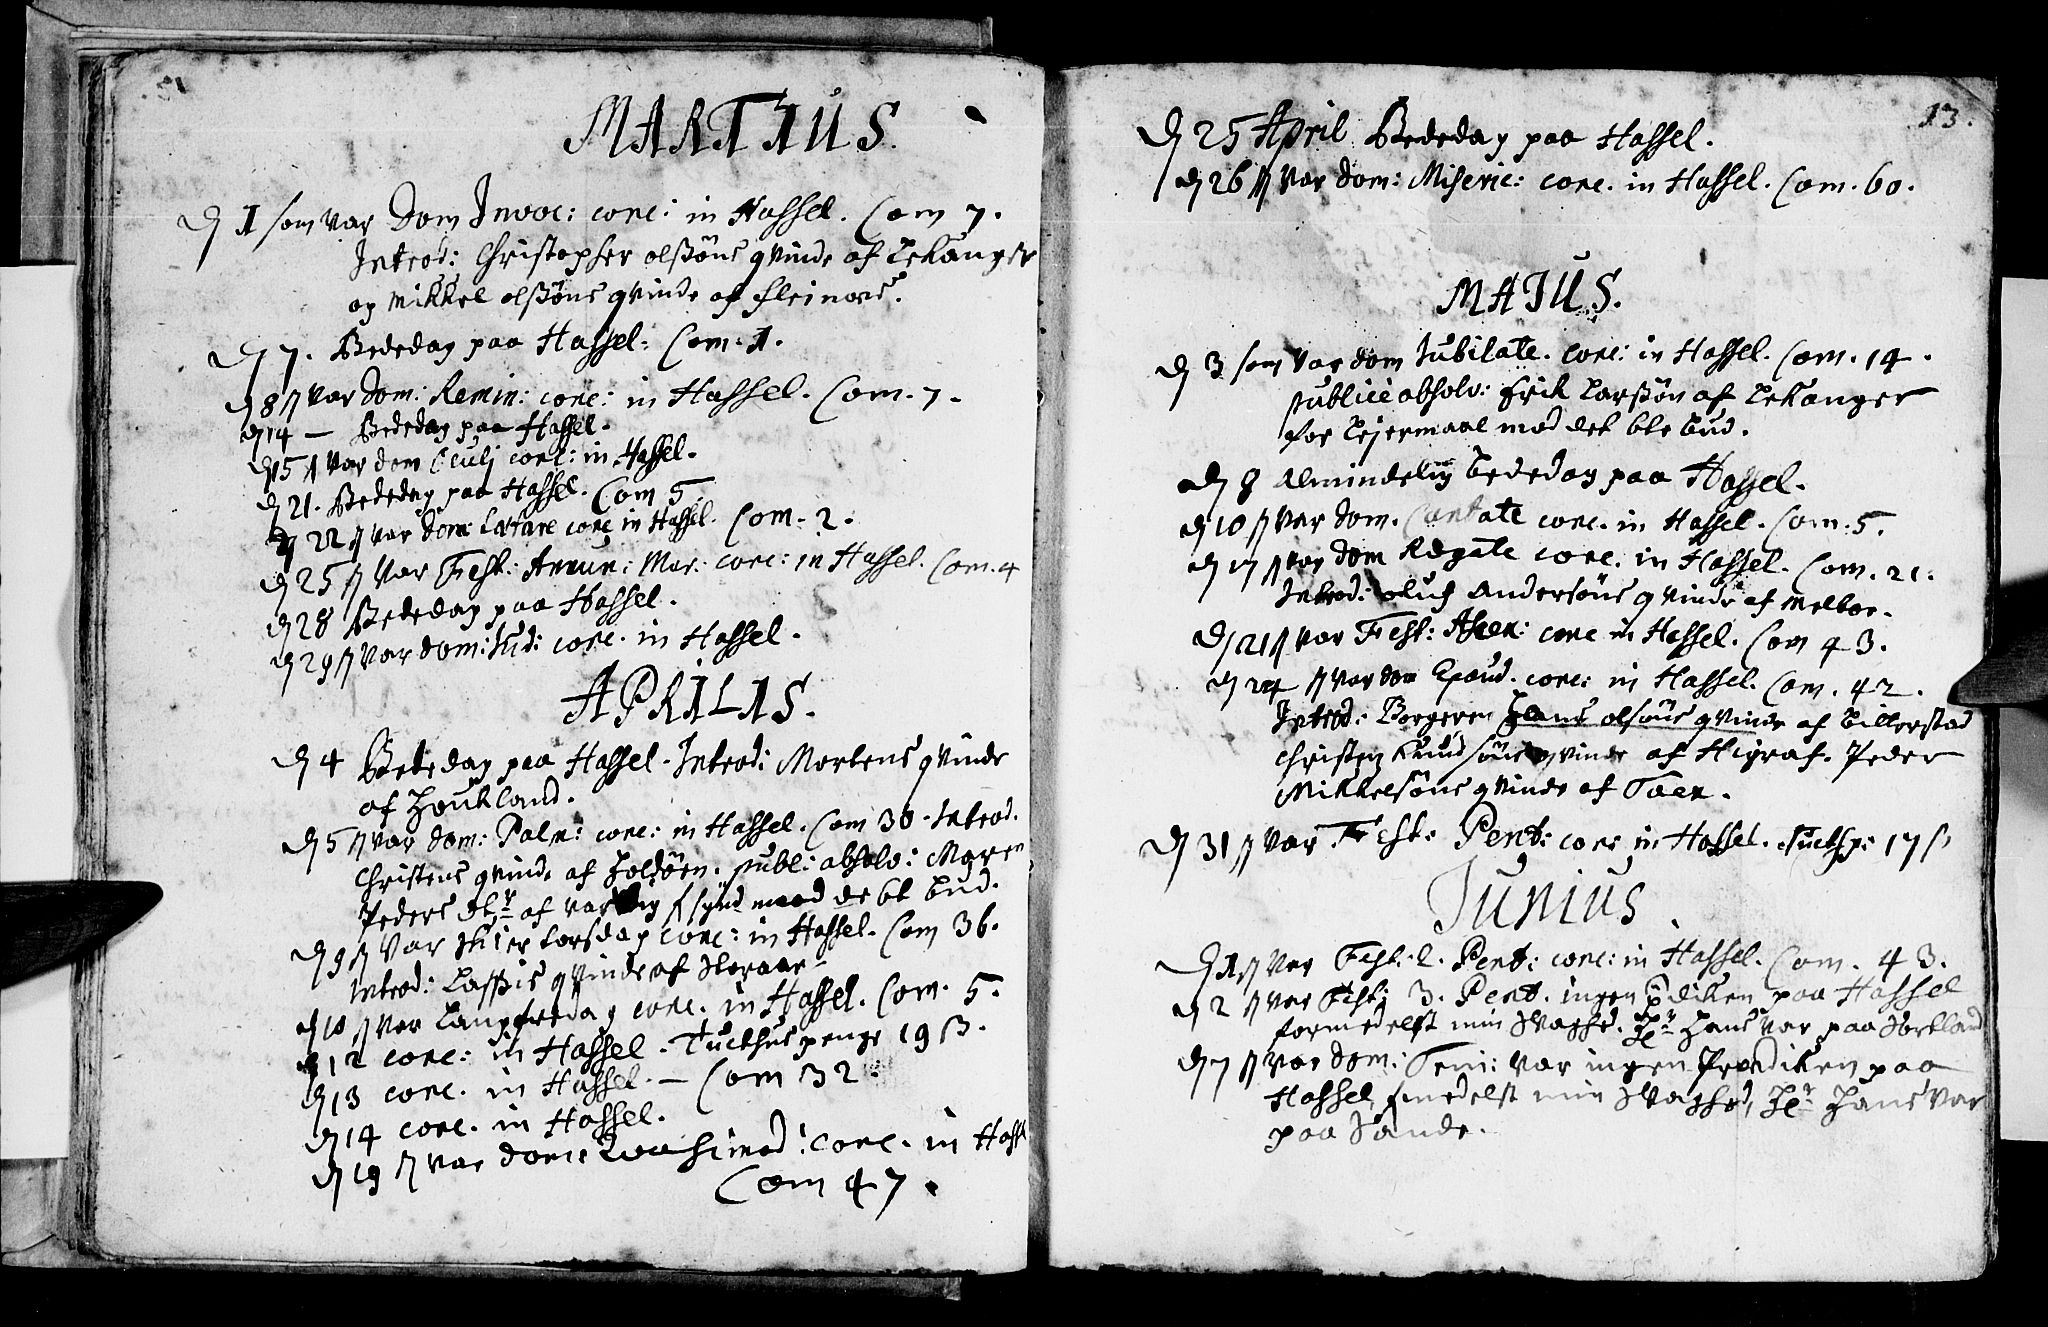 MARTIUS.
D 1 som var Dom Invoc: conc: in Hassel. Com 7.
Introd: Christopher olssöns qvinde af Lekanger
og Mikkel olssöns qvinde af fleinæs.
D 7. Bededag paa Hassel. Com. 1.
D 8 var dom: Remin: conc: in Hassel. Com. 7.
D 14 — Bededag paa Hassel.
D 15 var dom Oculj conc: in Hassel.
D 21. Bededag paa Hassel. Com 5.
D 22 var dom: Lætare conc in Hassel. Com. 2.
D 25 var Fest: Annun: Mar: conc: in Hassel. Com. 4
D 28 Bededag paa Hassel.
D 29 var dom: Jud: conc. in Hassel.
APRILIS.
D 4 Bededag paa Hassel. Introd: Mortens qvinde
af Houkland.
D 5 var dom: Palm: conc: in Hassel. Com 30. Introd.
Christens qvinde af Holdöen. publ: absolv: Maren
Peders dtr af f synd mod de 6t bud.
D 9 var skiertorsdag conc: in Hassel. Com 36.
Introd: Lassis qvinde af
D 10 var Langfredag conc. in Hassel. Com. 5.
D 12 conc: in Hassel. Tucthus penge 19 ß.
D 13 conc. in Hassel. — Com 32.
D 14 conc. in Hassel.
D 19 var dom: Quasimod: conc. in Hassel
Com 47.
13.
D 25 April Bededag paa Hassel.
D 26 var dom: Miseric: conc. in Hassel. Com. 60.
MAIUS.
D 3 som var dom Jubilate. conc: in Hassel. Com. 14.
publicè absolv: Erik Larssön af Lekanger
for Lejermaal mod det 6te bud.
D 8 Almindelig bededag paa Hassel.
D 10 var dom. Cantate conc. in Hassel. Com. 5.
D 17 var dom Rogate conc. in Hassel. Com. 21.
Introd: oluf Andersöns qvinde af Melboe.
D 21 var Fest: Ascen: conc in Hassel. Com 43.
D 24 var dom Exaud. conc: in Hassel. Com. 42.
Introd: Borgeren Hans olsöns qvinde af
Christen Knudsöns qvinde af Higraf. Peder
Mikkelsöns qvinde af Toen.
D 31 var Fest: Pent: conc in Hassel. tucthp: 17 ß
JUNIUS.
D 1 var Fest: 2. Pent: conc: in Hassel. Com. 43.
D 2 var Fest: 3. Pent. ingen pdiken paa Hassel
formedelst min svaghed. Hr Hans var paa
D 7 var dom: Trin: var ingen Prediken paa
Hassel fmedelst min svaghed, Hr Hans var
paa Sande.